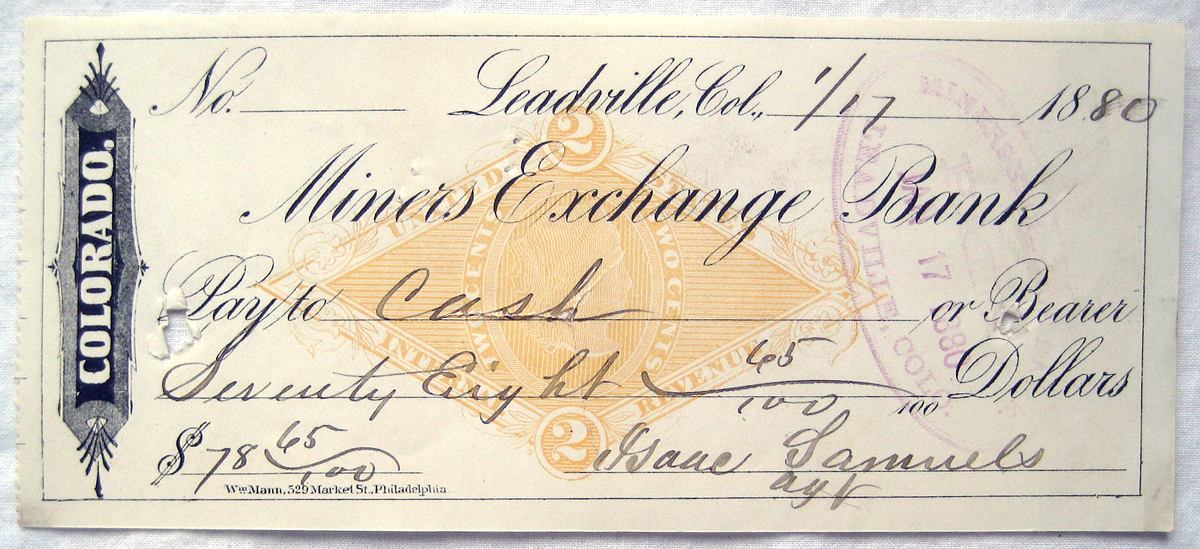 COLORADO.
No. Leadville, Col., 1/17 1880
Miners Exchange Bank
Pay to Cash or Bearer
Seventy Eight 65/100 100 Dollars
$78 65/100
Isaac Samuels
agt
Wm Mann, 529 Market St., Philadelphia.
2
UNITED ST
TWO CENTS
TWO CENTS
INTE REVENUE
2
MINERS
LEADVILLE, COLO.
17